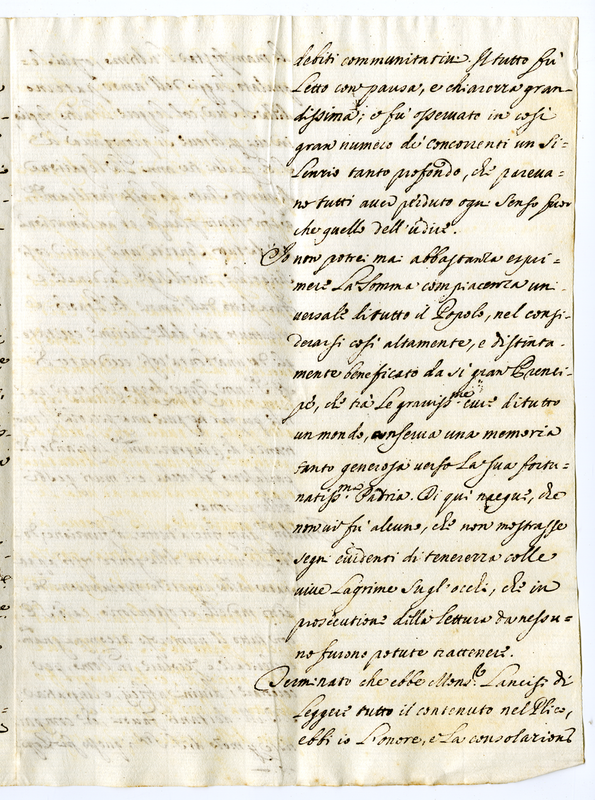 debiti communitativi. Il tutto fù
Letto con pausa, e chiarezza gran=
dissima; e fù osservato in così
gran numero de' concorrenti un Si=
lenzio tanto profondo, che pareva=
no tutti aver perduto ogni Senso fuor
che quello dell'udire.
Io non potrei mai abbastanza espri=
mere La Somma compiacenza uni=
versale di tutto il Popolo, nel consi=
derarsi così altamente, e distinta=
mente beneficato da sì gran Prenci=
pe, che trà Le graviss.me cure di tutto
un mondo, conserva una memoria
tanto generosa verso La Sua fortu=
natiss.ma Padria. Di quì nacque, che
non vi fù alcuno, che non mostrasse
segni evidenti di tenerezza colle
vive Lagrime Sugl'occhi, che in
prosecutione della lettura da nessu=
no furono potute trattenere.
Terminato che ebbe Mons.r Lancisi di
Leggere tutto il contenuto nel Plico,
ebbi io L'onore, e La consolazione